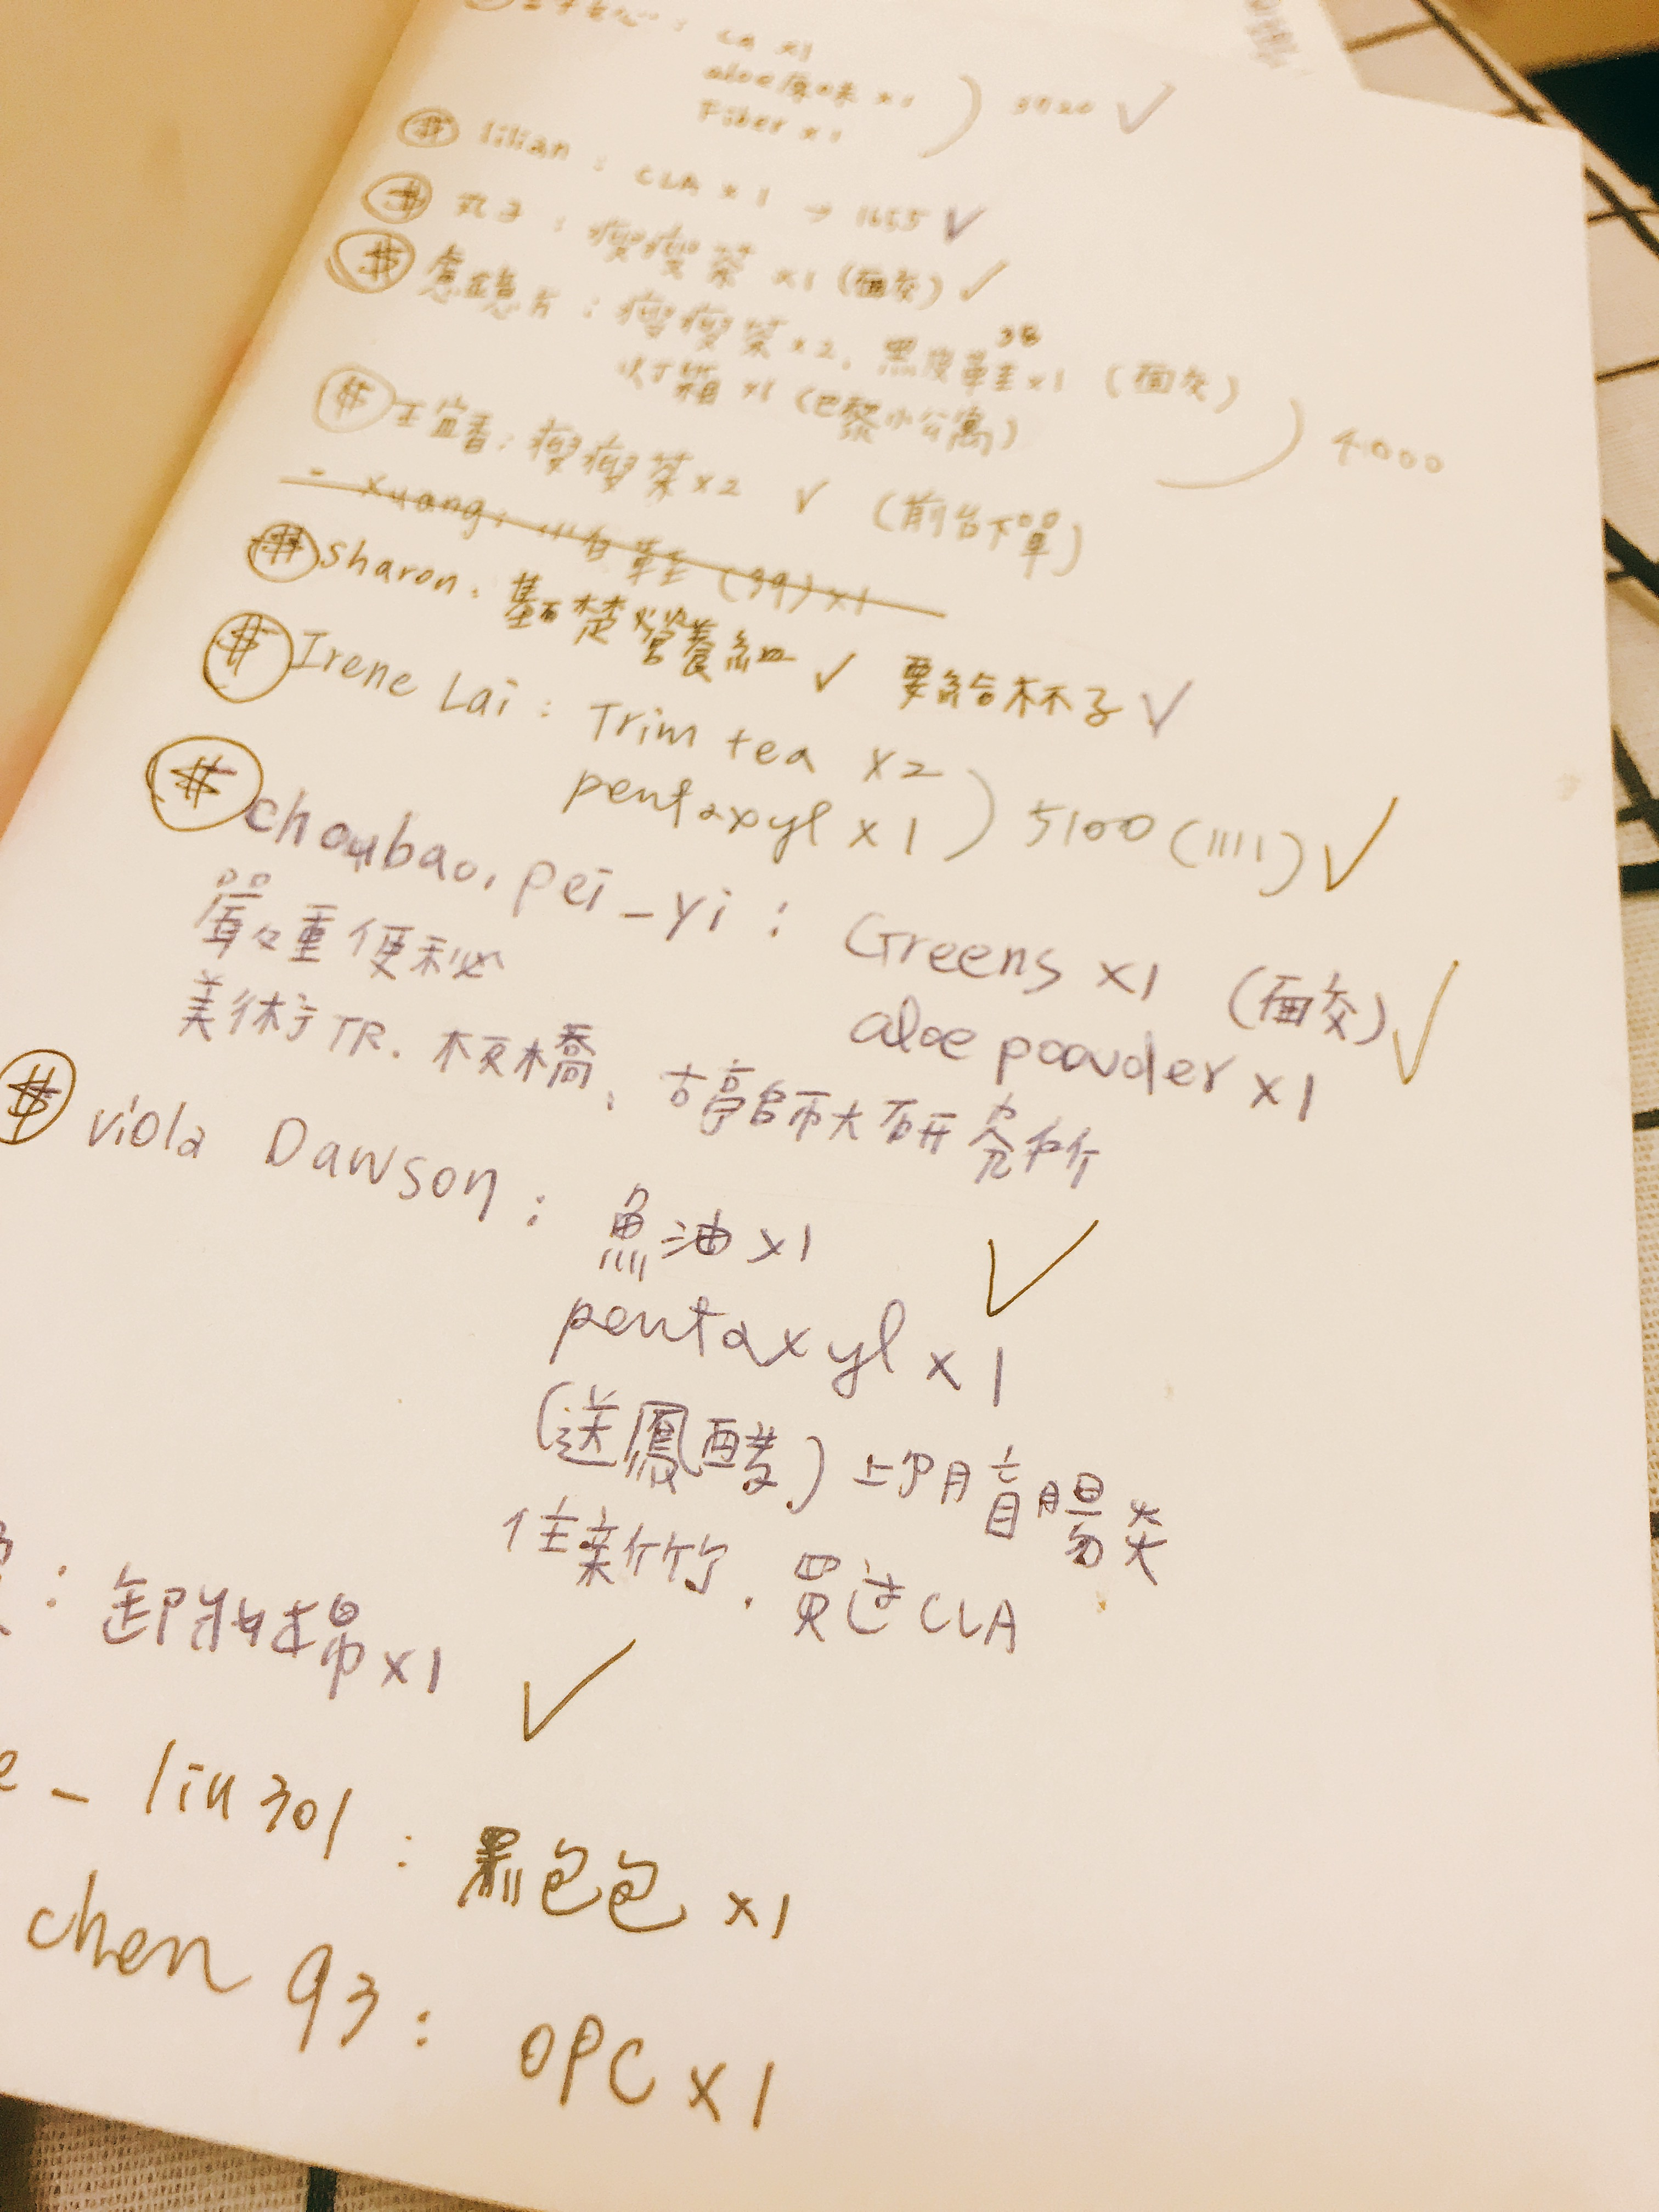 aloe原味 x1
Fiber x1 ) 3720 ✓
$ lilian : CLA x 1 → 1655 ✓
$ 丸子 : 瘦瘦茶 x1 (面交) ✓
$ : 瘦瘦茶 x2. 黑皮鞋 38 x1 (面交)
灯箱 x1 (巴黎小公寓) ) 4000
$ 王宜香 : 瘦瘦茶 x2 ✓ (前台下單)
- xuang : 小白鞋 (39) x1
$ sharon. 基礎營養組 ✓ 要給杯子 ✓
$ Irene Lai : Trim tea x2
pentaxyl x 1 ) 5100 (1111) ✓
$ choubao. pei_yi : Greens x1 (面交) ✓
嚴重便秘
aloe powder x1
美術TR. 板橋、古亭師大研究所
$ viola Dawson : 魚油 x1 ✓
pentaxyl x 1
(送鳳醋) 上個月盲腸炎
住新竹. 買過CLA
: 卸妝棉 x1 ✓
e_liu301 : 黑包包 x1
chen 93 : OPC x 1